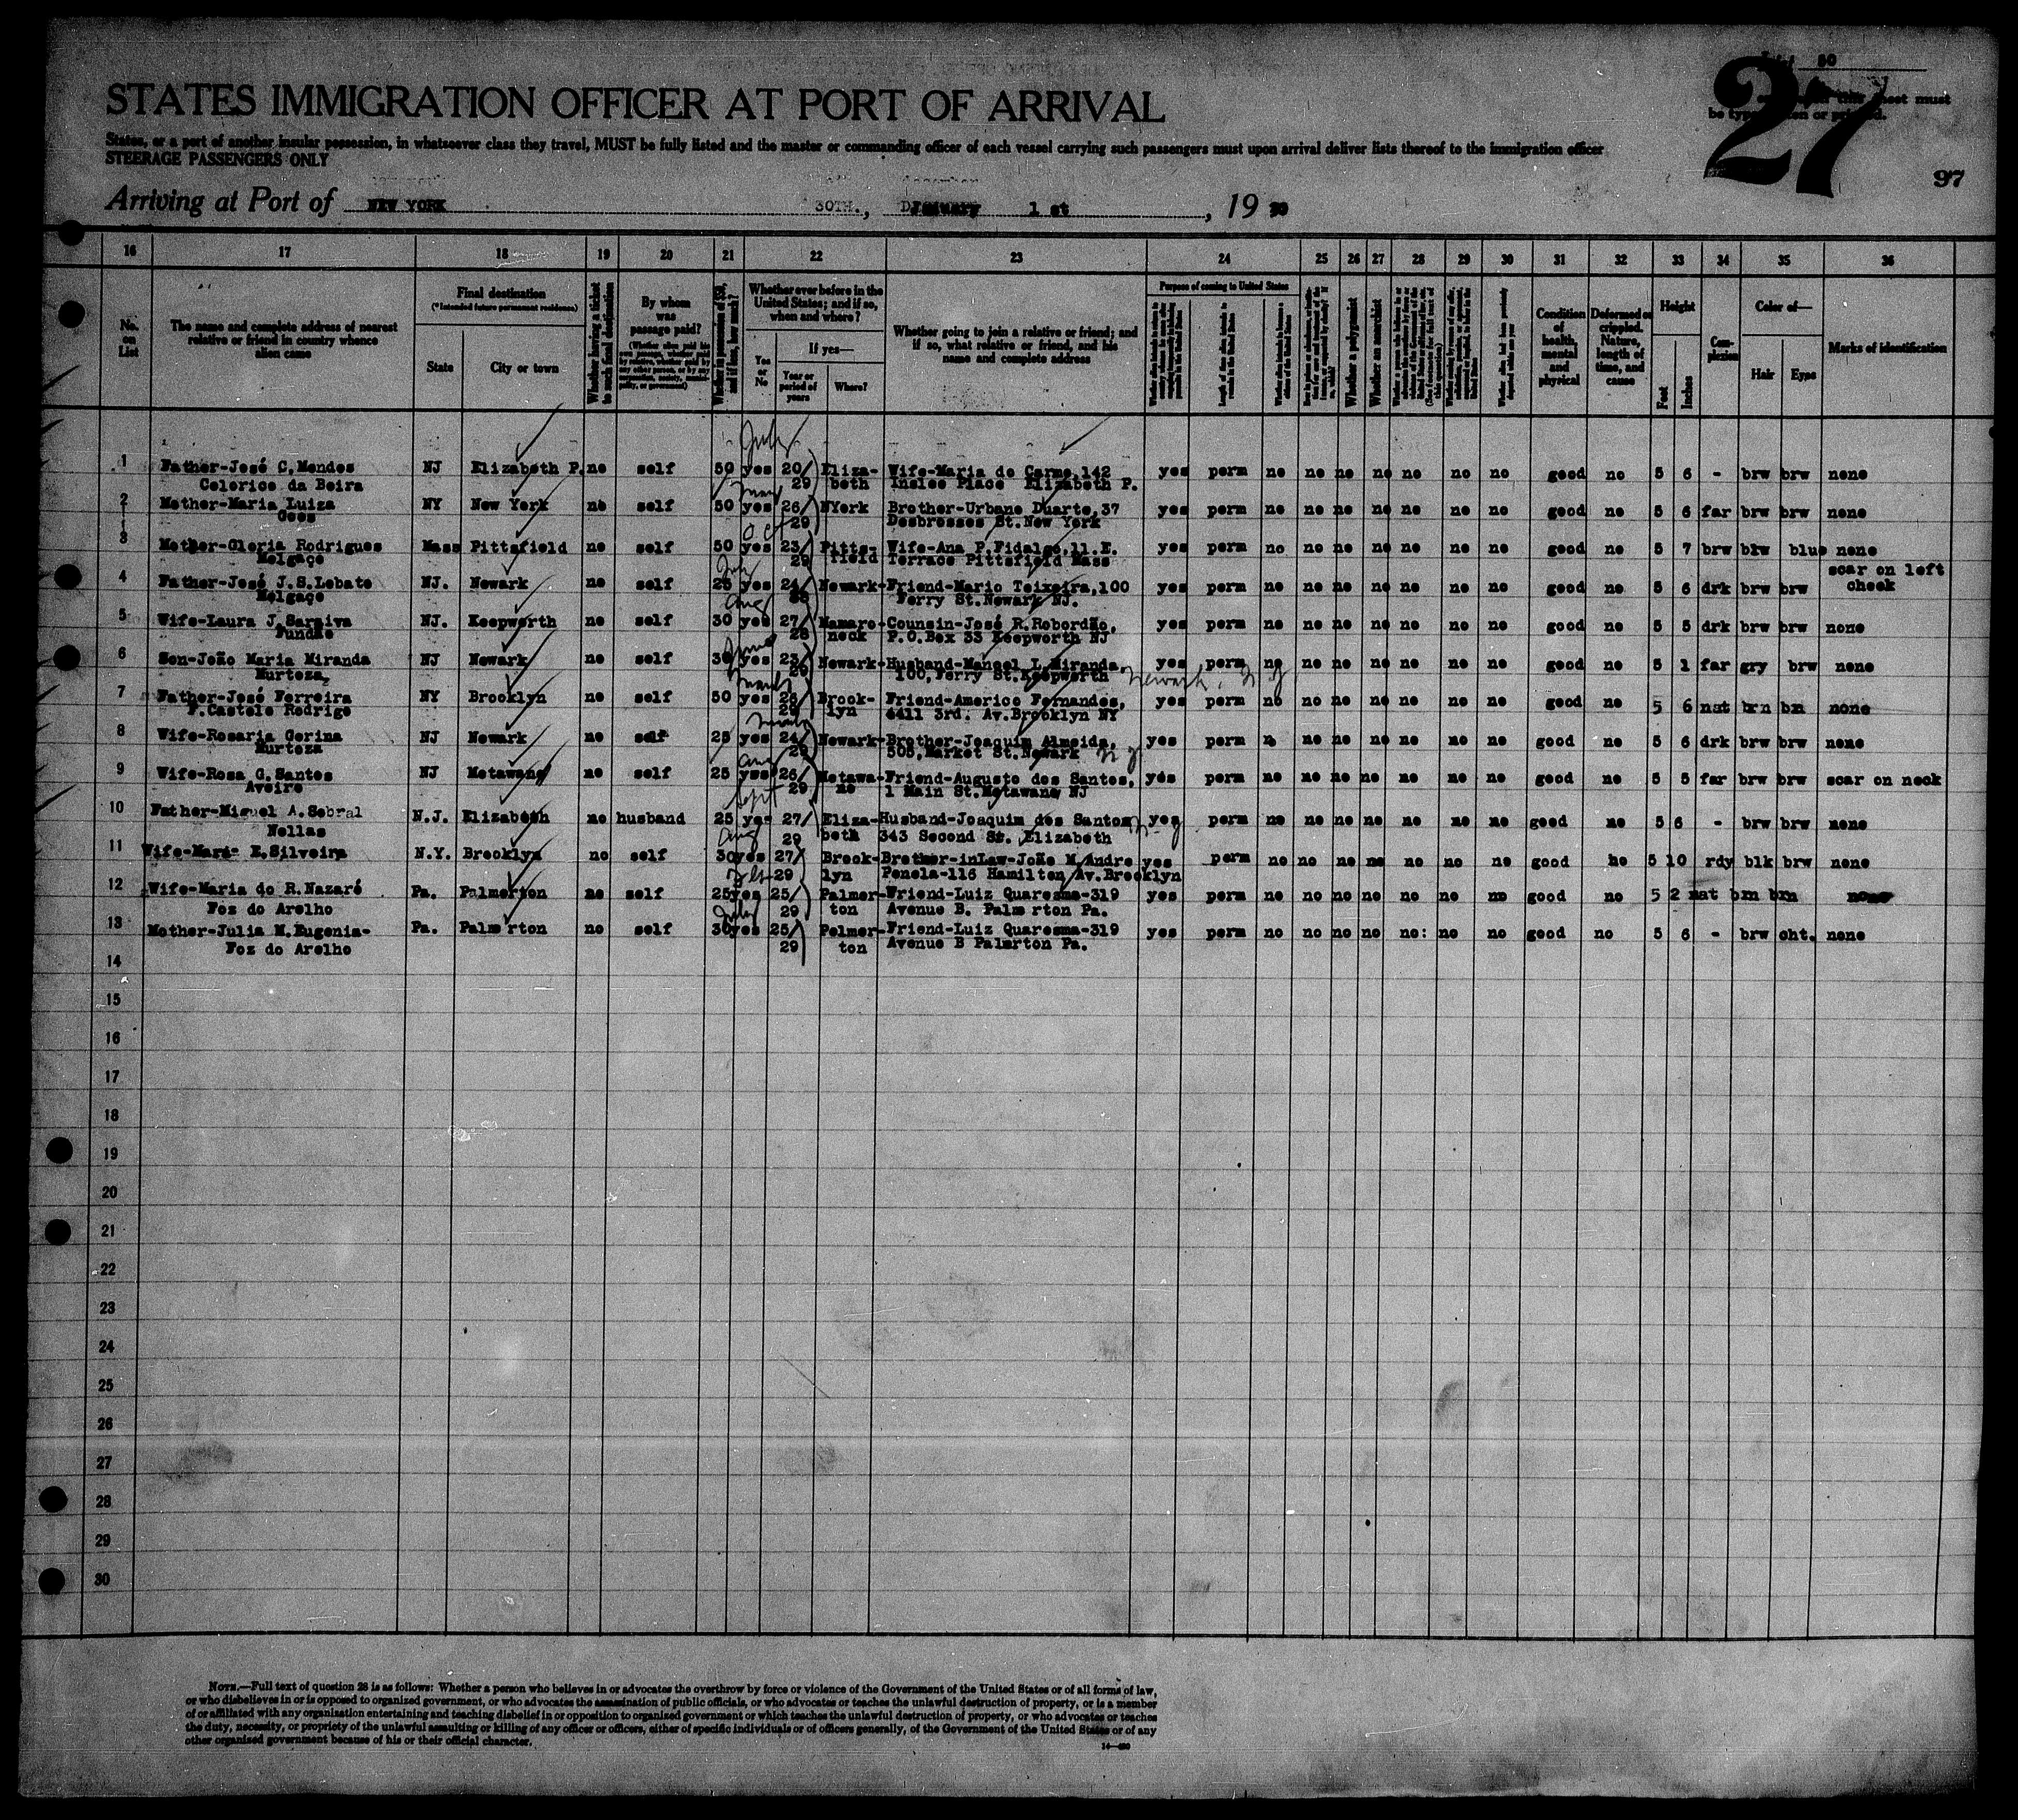 27
50
97
STATES IMMIGRATION OFFICER AT PORT OF ARRIVAL
States, or a port of another insular possession, in whatsoever class they travel, MUST be fully listed and the master or commanding officer of each vessel carrying such passengers must upon arrival deliver lists thereof to the immigration officer
STEERAGE PASSENGERS ONLY
Arriving at Port of NEW YORK 30TH., 1 st, 19
16 17 18 19 20 21 22 23 24 25 26 27 28 29 30 31 32 33 34 35 36
No. on List
The name and complete address of nearest relative or friend in country whence alien came
Final destination
(*Intended future permanent residence)
State
City or town
Whether having a ticket to such final destination
By whom was passage paid?
Whether ever before in the United States; and if so, when and where?
Yes or No
If yes—
Year or period of years
Where?
Whether going to join a relative or friend; and if so, what relative or friend, and his name and complete address
Purpose of coming to United States
Whether a polygamist
Whether an anarchist
Condition of health, mental and physical
Deformed or crippled. Nature, length of time, and cause
Height
Feet
Inches
Complexion
Color of—
Hair
Eyes
Marks of identification
July
1 Father-José C, Mendes NJ Elizabeth P. no self 50 yes 20/ Eliza- Wife-Maria do Carmo, 142 yes perm no no no no no no no good no 5 6 - brw brw none
Celorico da Beira 29 beth Inslee Place Elizabeth P.
2 Mother-Maria Luiza NY New York no self 50 yes 26/ NYork Brother-Urbano Duarte, 37 yes perm no no no no no no no good no 5 6 far brw brw none
Goes 29 Desbrosses St. New York
Oct
3 Mother-Gloria Rodrigues Mass Pittsfield no self 50 yes 23/ Pitts- Wife-Ana P. Fidalgo, 11. E. yes perm no no no no no no no good no 5 7 brw brw blue none
Melgaço 29 field Terrace Pittsfield Mass
4 Father-José J.S. Lobato NJ. Newark no self 25 yes 24/ Newark- Friend-Mario Teixeira, 100 yes perm no no no no no no no good no 5 6 drk brw brw scar on left cheek
Melgaço Ferry St. Newark NJ.
Aug
5 Wife-Laura J. Saraiva NJ. Keepworth no self 30 yes 27/ Mamaro- Counsin-José R. Robordão, yes perm no no no no no no no good no 5 5 drk brw brw none
Fundão 28 neck P.O. Box 33 Keepworth NJ
6 Son-João Maria Miranda NJ Newark no self 30 yes 23/ Newark- Husband-Manoel L. Miranda, yes perm no no no no no no no good no 5 1 far gry brw none
Murtoza, 29 100, Ferry St. Keepworth Newark, N J
7 Father-José Ferreira NY Brooklyn no self 50 yes 26/ Brook- Friend-Americo Fernandes, yes perm no no no no no no no good no 5 6 nat brn bn none
F. Castelo Rodrigo 29 lyn 4411 3rd. Av. Brooklyn NY
8 Wife-Rosaria Gorina NJ Newark no self 25 yes 24/ Newark- Brother-Joaquim Almeida, yes perm n. no no no no no no good no 5 6 drk brw brw none
Murtoza 29 505, Market St. Newark N J
Aug
9 Wife-Rosa G. Santos NJ Matawang no self 25 yes 26/ Matawa- Friend-Augusto dos Santos, yes perm no no no no no no no good no 5 5 far brw brw scar on neck
Aveiro 29 1 Main St. Matawang NJ
Sept
10 Father-Miguel A. Sobral N.J. Elizabeth no husband 25 yes 27/ Eliza- Husband-Joaquim dos Santos yes perm no no no no no no no good no 5 6 - brw brw none
Nellas 29 beth 343 Second St. Elizabeth
Aug
11 Wife-Maria E. Silveira N.Y. Brooklyn no self 30 yes 27/ Brook- Brother-inLaw-João M. Andre yes perm no no no no no no no good no 5 10 rdy blk brw none
29 lyn Penela-116 Hamilton Av. Brooklyn
12 Wife-Maria do R. Nazaré Pa. Palmerton no self 25 yes 25/ Palmer- Friend-Luiz Quaresma-319 yes perm no no no no no no no good no 5 2 nat brn brn none
Foz do Arelho 29 ton Avenue B. Palmerton Pa.
July
13 Mother-Julia M. Eugenia- Pa. Palmerton no self 30 yes 25/ Palmer- Friend-Luiz Quaresma-319 yes perm no no no no no: no no good no 5 6 - brw cht. none
Foz do Arelho 29 ton Avenue B Palmrton Pa.
14
15
16
17
18
19
20
21
22
23
24
25
26
27
28
29
30
NOTE.—Full text of question 28 is as follows: Whether a person who believes in or advocates the overthrow by force or violence of the Government of the United States or of all forms of law,
or who disbelieves in or is opposed to organized government, or who advocates the assassination of public officials, or who advocates or teaches the unlawful destruction of property, or is a member
of or affiliated with any organization entertaining and teaching disbelief in or opposition to organized government or which teaches the unlawful destruction of property, or who advocates or teaches
the duty, necessity, or propriety of the unlawful assaulting or killing of any officer or officers, either of specific individuals or of officers generally, of the Government of the United States or of any
other organized government because of his or their official character.